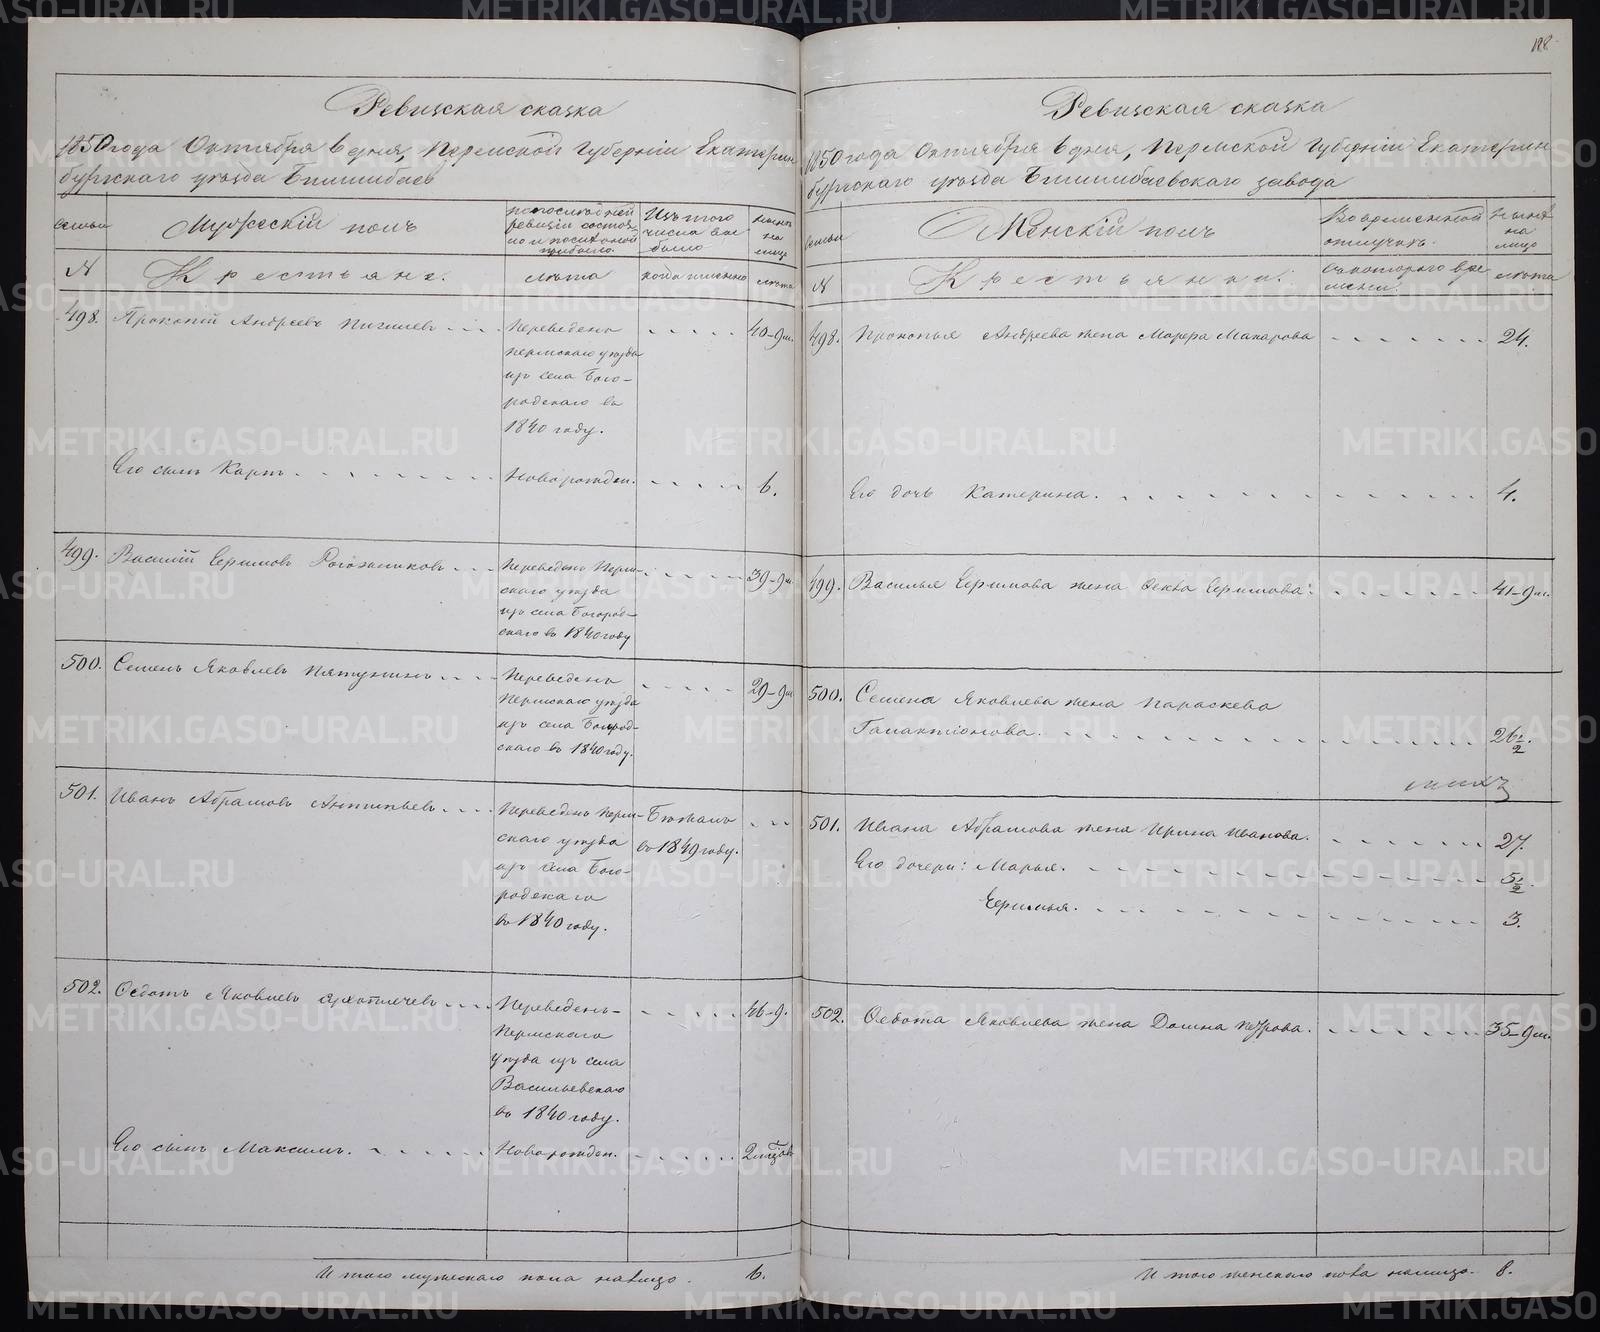 188
Ревизская сказка
1850 года Октября 6 дня, Пермской Губернии Екатерин
бургскаго уѣзда Билимбаев
семьи
Мужескій полъ
по последней
ревизіи состоя
ло и после оной
прибыло.
Изъ того
числа вы
было
ныне
на
лицо
№
Крестьяне.
лѣта
когда именно
лѣта
498.
Прокопій Андреевъ
Переведенъ
40-9м.
Пермскаго уѣзда
изъ села Бого-
родскаго въ
1840 году.
Его сынъ Карпъ
Новорожден.
6.
499.
Василій Ефимовъ Рогожниковъ
Переведенъ Перм-
39-9м.
скаго уѣзда
изъ села Богород-
скаго въ 1840 году
500.
Семенъ Яковлевъ
Переведенъ
29-9м
Пермскаго уѣзда
изъ села Богород-
скаго въ 1840 году.
501.
Иванъ Абрамовъ Антипьевъ
Переведенъ Перм-
Бежалъ
скаго уѣзда
въ 1849 году.
изъ села Бого-
родскаго
въ 1840 году.
502.
Федотъ Яковлевъ
Переведенъ
46-9.
Пермскаго
уѣзда изъ села
Васильевскаго
въ 1840 году.
Его сынъ Максимъ.
Новорожден.
И того мужескаго пола налицо.
6.
Ревизская сказка
1850 года Октября 6 дня, Пермской Губерніи Екатерин
бургскаго уѣзда Билимбаевскаго завода
семьи
Женскій полъ
Во временной
отлучкѣ.
Нынѣ
на
лицо
№
Крестьянки.
съ котораго вре
мени.
лѣта
498.
Прокопья Андреева жена Марфа Макарова
24.
Его дочь Катерина.
4.
499.
Василья Ефимова жена Фекла Ефимова:
41-9м.
500.
Семена Яковлева жена Параскева
Галактіонова.
26½.
501.
Ивана Абрамова жена Ирина Иванова.
27.
Его дочери: Марья.
5½.
Ефимья.
3.
502.
Федота Яковлева жена Домна Петрова.
35-9м.
И того женскаго пола налицо.
8.
METRIKI.GASO-URAL.RU